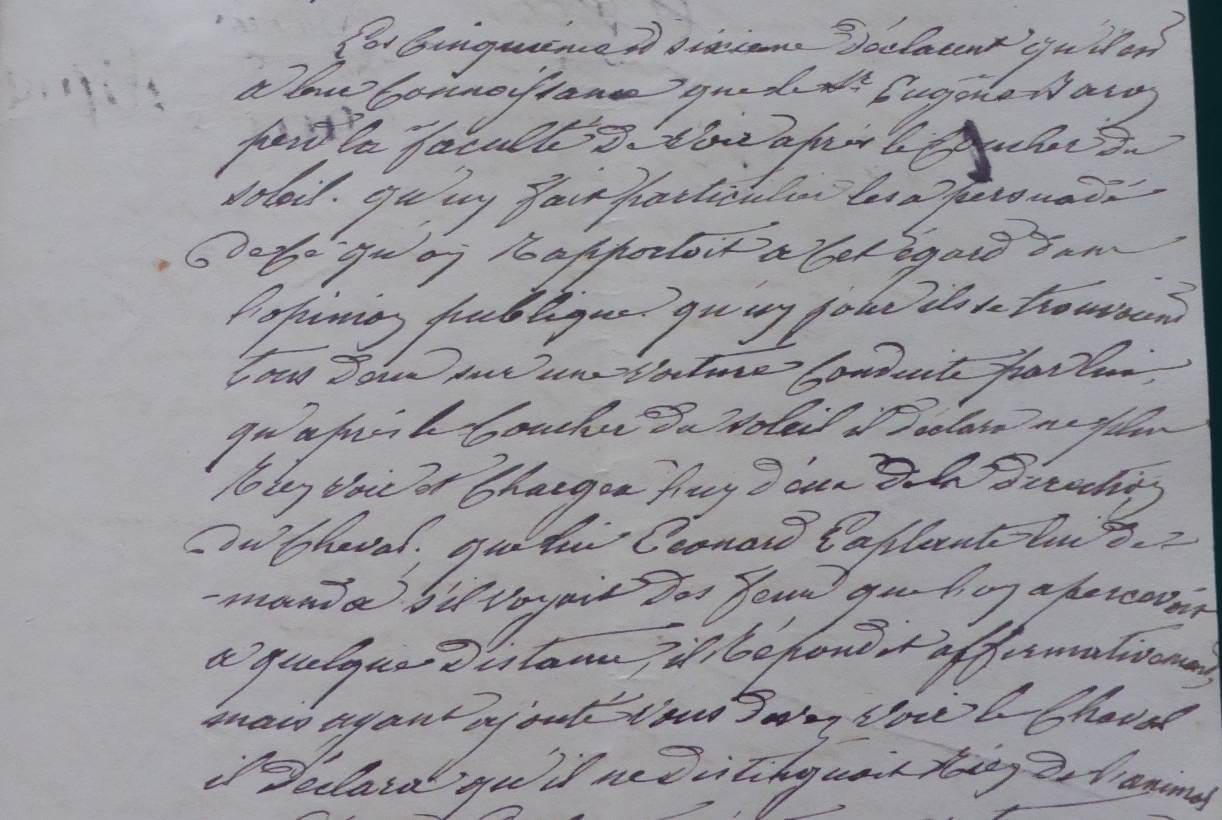 Les Cinquième et sixieme déclarent qu'il est
a leur Connoissance que le Sr. Eugène Baron
perd la faculté De voir après le Coucher du
soleil. qu'un fait particulier les a persuadé
De Ce qu'on Rapportoit a Cet égard dans
l'opinion publique. qu'un jour ils se trouvoient
tous deux sur une voiture Conduite par lui,
qu'après le Coucher du soleil il déclara ne plus
Rien voir et Chargea l'un d'eux De la Direction
Du Cheval. que lui Leonard Laplante lui de-
-manda s'il voyait Des feux que l'on apercevoit
a quelque Distance, il Répondit affirmativement
mais ayant ajouté vous devez voir le Cheval
il Déclara qu'il ne distinguoit Rien de l'animal